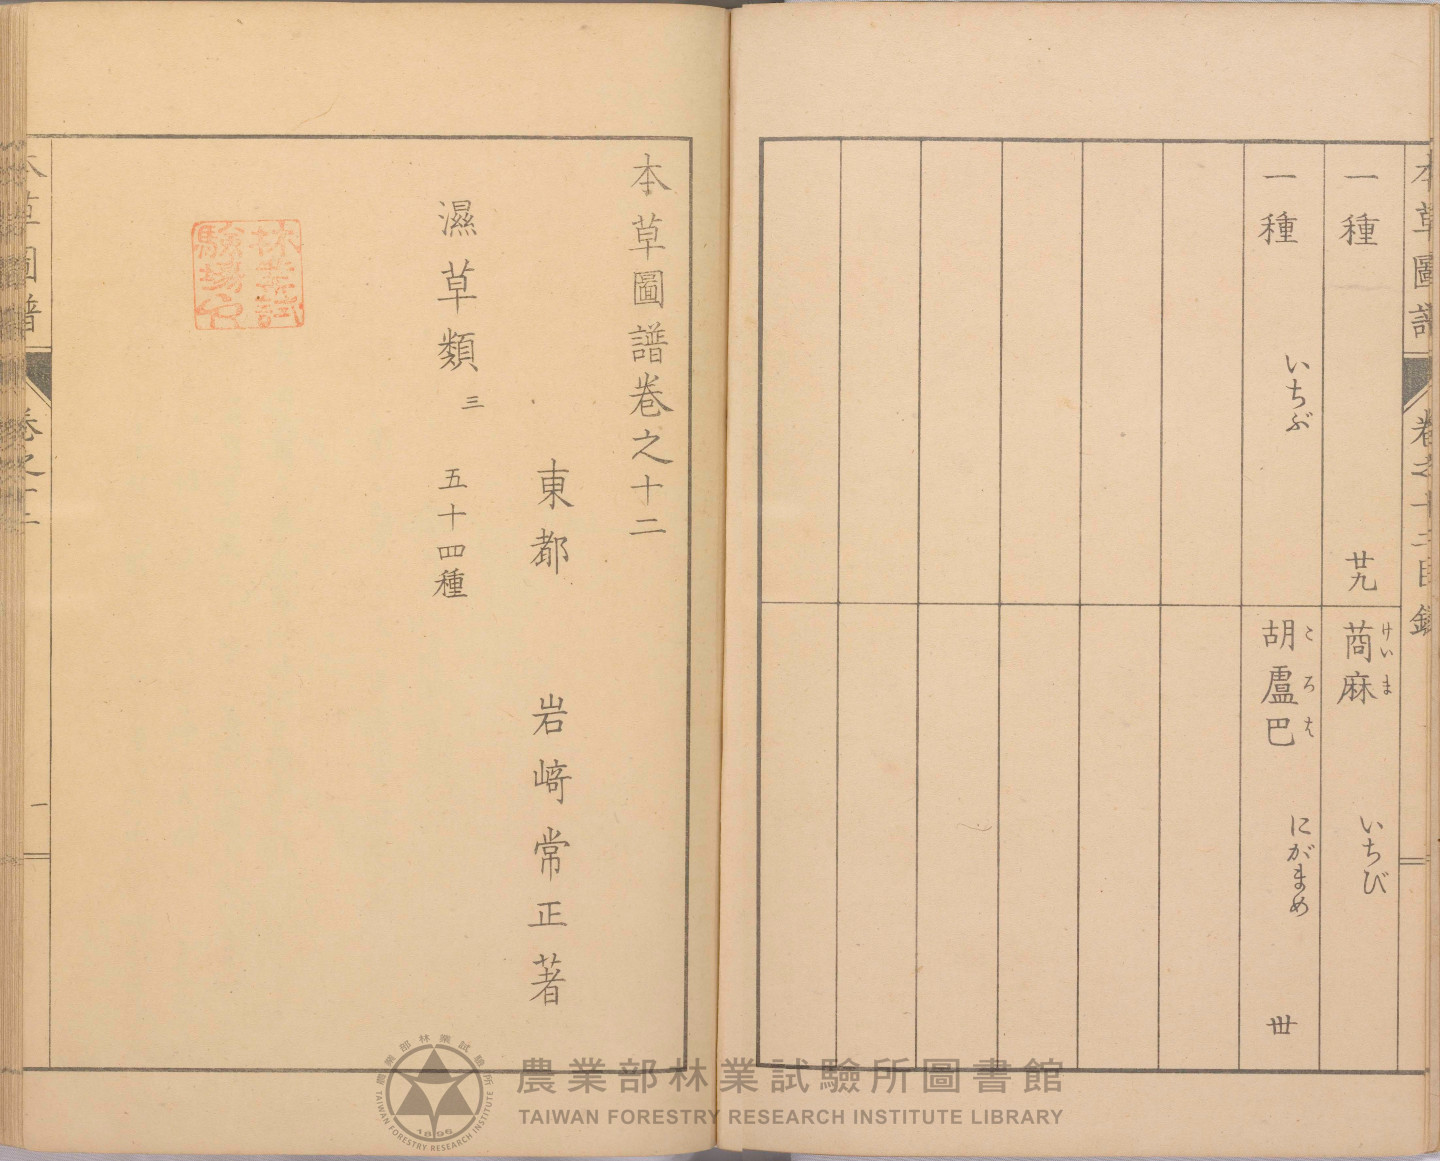 本草圖譜 卷之十二目錄
一種 廿九
茼麻 けいま いちび
一種 いちぶ
胡盧巴 ころは にがまめ 丗
本草圖譜卷之十二
東都 岩﨑常正著
濕草類 三 五十四種
林業試
驗場印
本草圖譜 卷之十二 一
農業部林業試驗所圖書館
TAIWAN FORESTRY RESEARCH INSTITUTE LIBRARY
農業部林業試驗所
TAIWAN FORESTRY RESEARCH INSTITUTE
1896